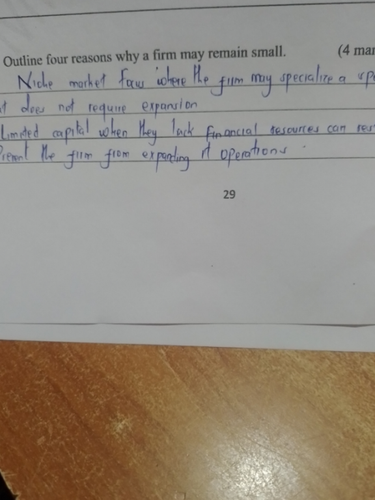 Outline four reasons why a firm may remain small. (4 mar
Niche market focus where the firm may specialize a
does not require expansion
Limited capital when they lack financial resources can
the firm from expanding it operations.
29